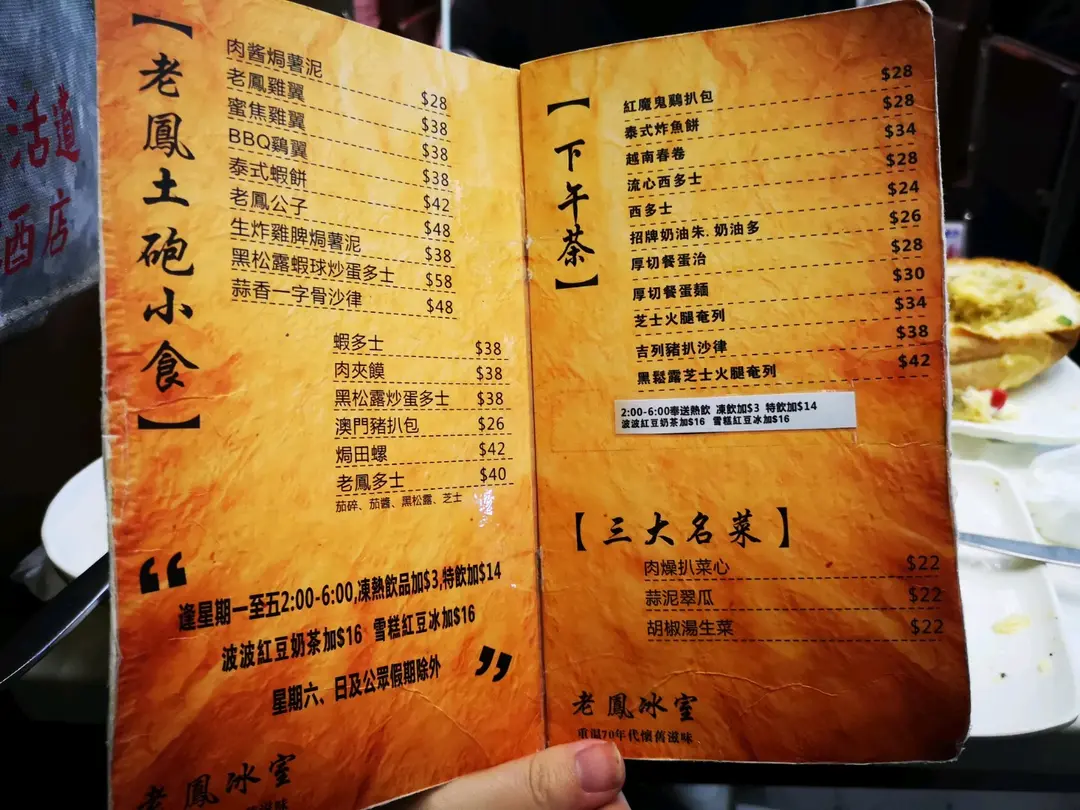 活道
酒店
【老鳳土砲小食】
肉酱焗薯泥 $28
老鳳雞翼 $38
蜜焦雞翼 $38
BBQ鷄翼 $38
泰式蝦餅 $42
老鳳公子 $48
生炸雞脾焗薯泥 $38
黑松露蝦球炒蛋多士 $58
蒜香一字骨沙律 $48
蝦多士 $38
肉夾饃 $38
黑松露炒蛋多士 $38
澳門豬扒包 $26
焗田螺 $42
老鳳多士 $40
茄碎、茄醬、黑松露、芝士
“逢星期一至五2:00-6:00,凍熱飲品加$3,特飲加$14
波波紅豆奶茶加$16 雪糕紅豆冰加$16
星期六、日及公眾假期除外”
老鳳冰室
懷舊滋味
【下午茶】
紅魔鬼鷄扒包 $28
泰式炸魚餅 $28
越南春卷 $34
流心西多士 $28
西多士 $24
招牌奶油朱.奶油多 $26
厚切餐蛋治 $28
厚切餐蛋麵 $30
芝士火腿奄列 $34
吉列豬扒沙律 $38
黑鬆露芝士火腿奄列 $42
2:00-6:00奉送熱飲 凍飲加$3 特飲加$14
波波紅豆奶茶加$16 雪糕紅豆冰加$16
【三大名菜】
肉燥扒菜心 $22
蒜泥翠瓜 $22
胡椒湯生菜 $22
老鳳冰室
重温70年代懷舊滋味